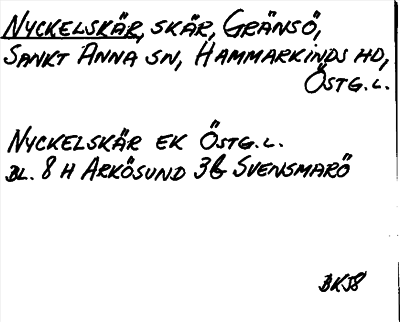 NYCKELSKÄR, SKÄR, GRÄNSÖ,
SANKT ANNA SN, HAMMARKINDS HD,
ÖSTG. L.
NYCKELSKÄR EK ÖSTG. L.
BL. 8 H ARKÖSUND 3b SVENSMARÖ
BK58